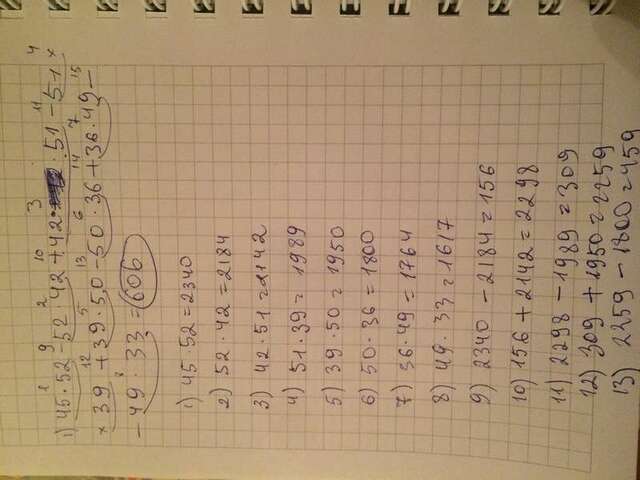 1) 45·52-52·42+42·51-51×
×39+39·50-50·36+36·49-
-49·33=606
1) 45·52=2340
2) 52·42=2184
3) 42·51=2142
4) 51·39=1989
5) 39·50=1950
6) 50·36=1800
7) 36·49=1764
8) 49·33=1617
9) 2340-2184=156
10) 156+2142=2298
11) 2298-1989=309
12) 309+1950=2259
13) 2259-1800=459